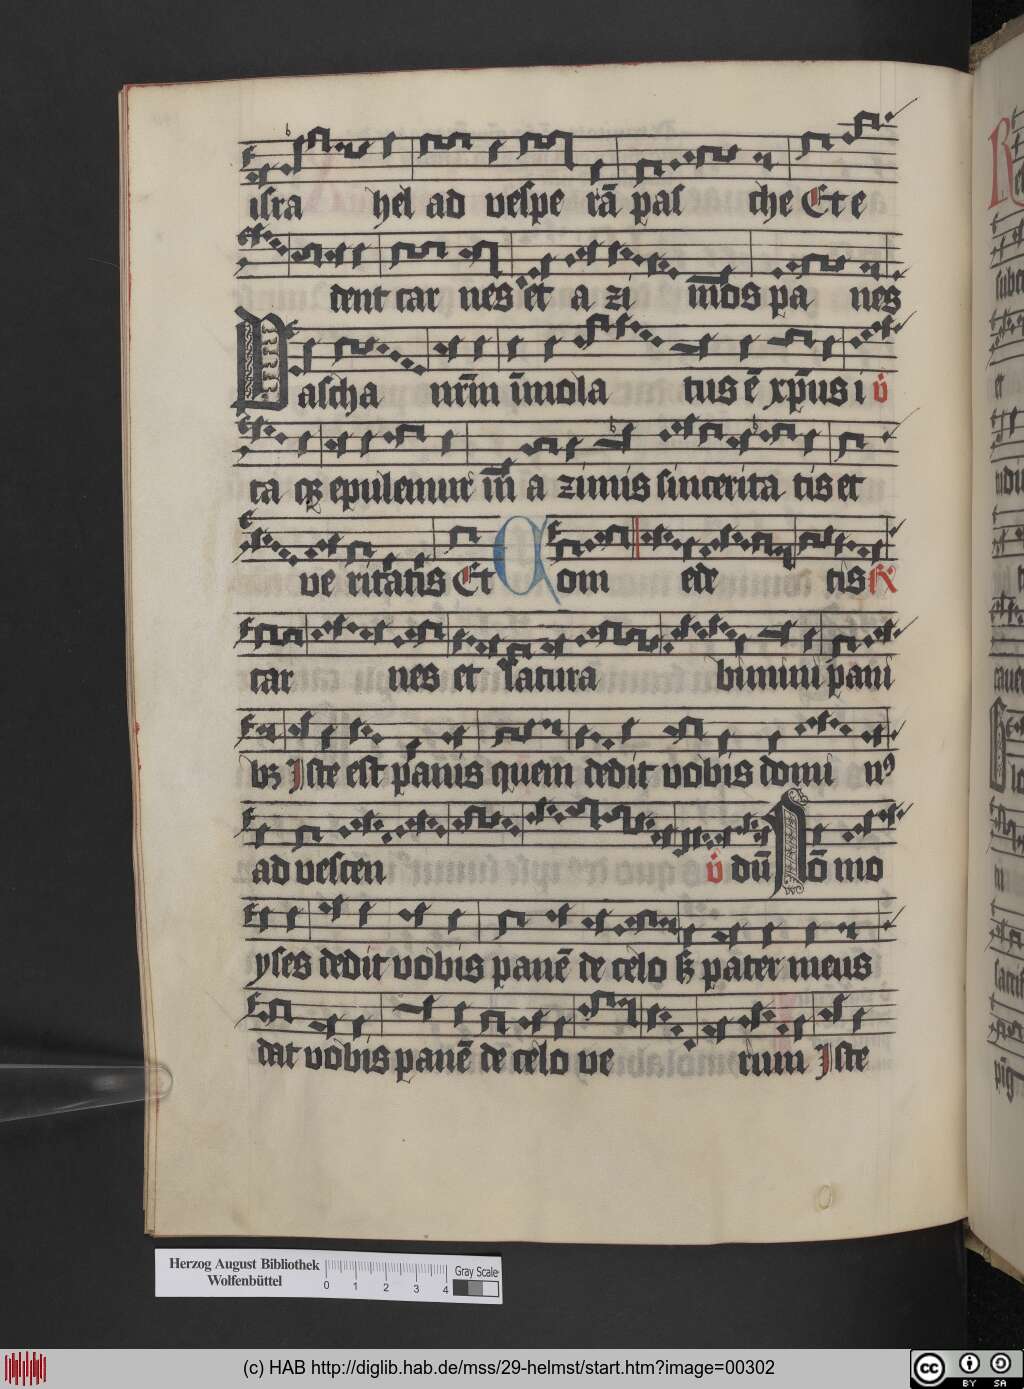 isra hel ad vespe rā pas che Et e
dent car nes et a zi mos pa nes
Pascha nr̄m īmola tus ē xp̄us i v̇
ta qꝫ epulemur in̄ a zimis sincerita tis et
ve ritatis Et Com ede tis ℟
car nes et satura bimini pani
bꝫ Iste est panis quem dedit vobis domi nꝰ
ad vescen v̇ dū Nō mo
yses dedit vobis panē de celo sꝫ pater meus
dat vobis panē de celo ve rum Iste
Herzog August Bibliothek
Wolfenbüttel
0 1 2 3 4
Gray Scale
(c) HAB http://diglib.hab.de/mss/29-helmst/start.htm?image=00302
cc BY SA